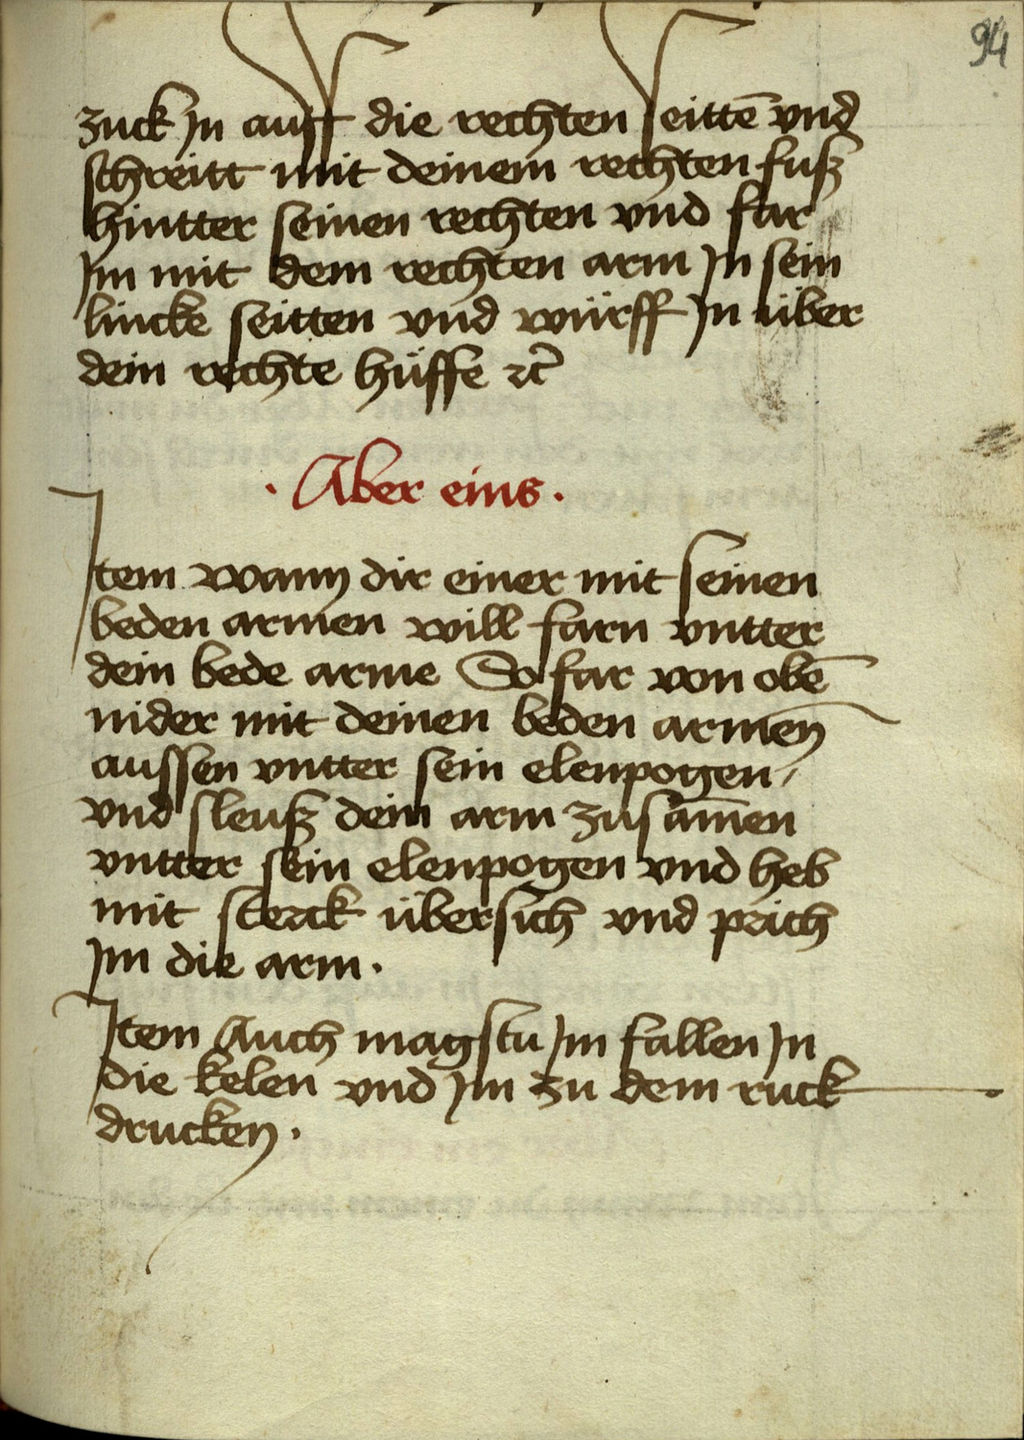 94
zuck jn auff die rechten seittē vnd
schreitt mit deinem rechten fuß
hintter seinen rechten vnd far
jm mit dem rechten arm jn sein
lincke seitten vnd würff jn über
dein rechte hüffe ⁊c̄
· Aber eins ·
Item wann dir einer mit seinen
beden armen will farn vntter
dein bede arme So far von obē
nider mit deinen beden armen
aussen vntter sein elenpogen /
vnd sleuß dein arm zusam̄en
vntter sein elenpogen vnd heb
mit sterck übersich vnd prich
jm die arm ·
Item Auch magstu jm fallen jn
die kelen vnd jm zu dem ruck
drucken ·